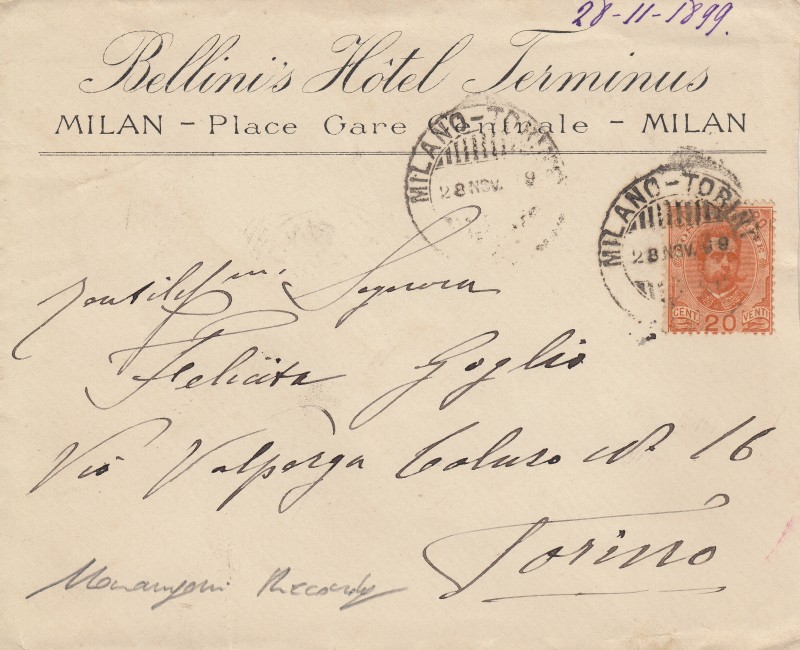 28-11-1899.
Bellini's Hôtel Terminus
MILAN - Place Gare Centrale - MILAN
MILANO-TORINO
28 NOV. 9
MILANO-TORINO
28 NOV. 99
CENT 20 VENTI
Gentiliss.ma Signora
Felicita Goglio
Via Valperga Caluso N. 16
Torino
Marangoni Riccardo